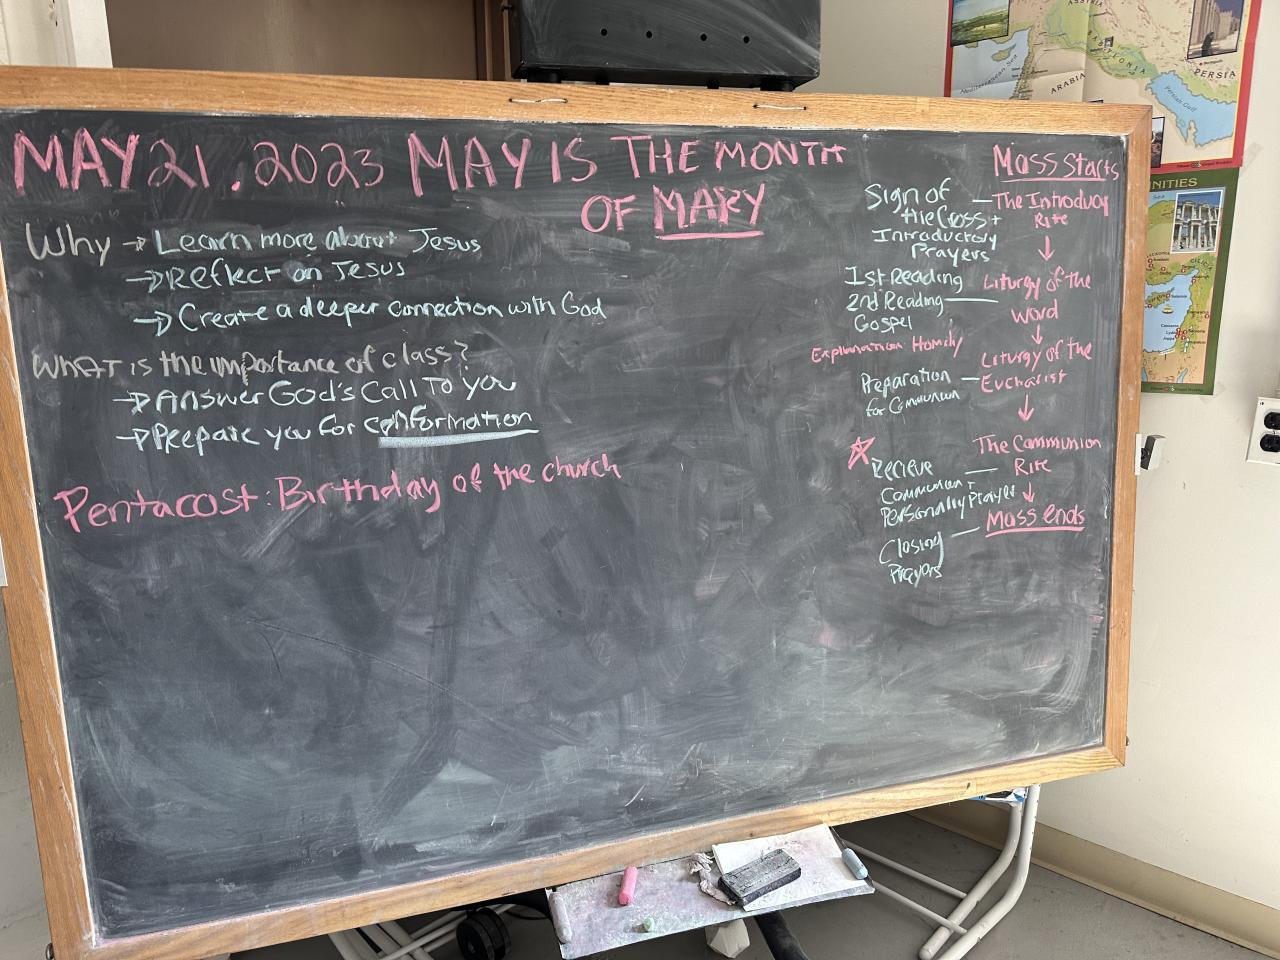 MAY 21. 2023 MAY IS THE MONTH
OF MARY
Why → Learn more about Jesus
→ Reflect on Jesus
→ Create a deeper connection with God
WHAT IS the importance of class?
→ Answer God's Call To you
→ Prepare you for conformation
Pentacost: Birthday of the church
Mass starts
Sign of
the Cross +
Introductory
Prayers
The Introduoy
Rite
↓
1st Reading
2nd Reading
Gospel
Liturgy of the
Word
↓
Explanation Homily
Liturgy of the
Eucharist
Preparation
for Communion
↓
The Communion
Rite
Recieve
Communion +
Personally Prayer
↓
Mass ends
Closing
Prayers
ASSYRIA
Mediterranean Sea
ARABIA
PERSIA
Persian Gulf
NITIES
CILICIA